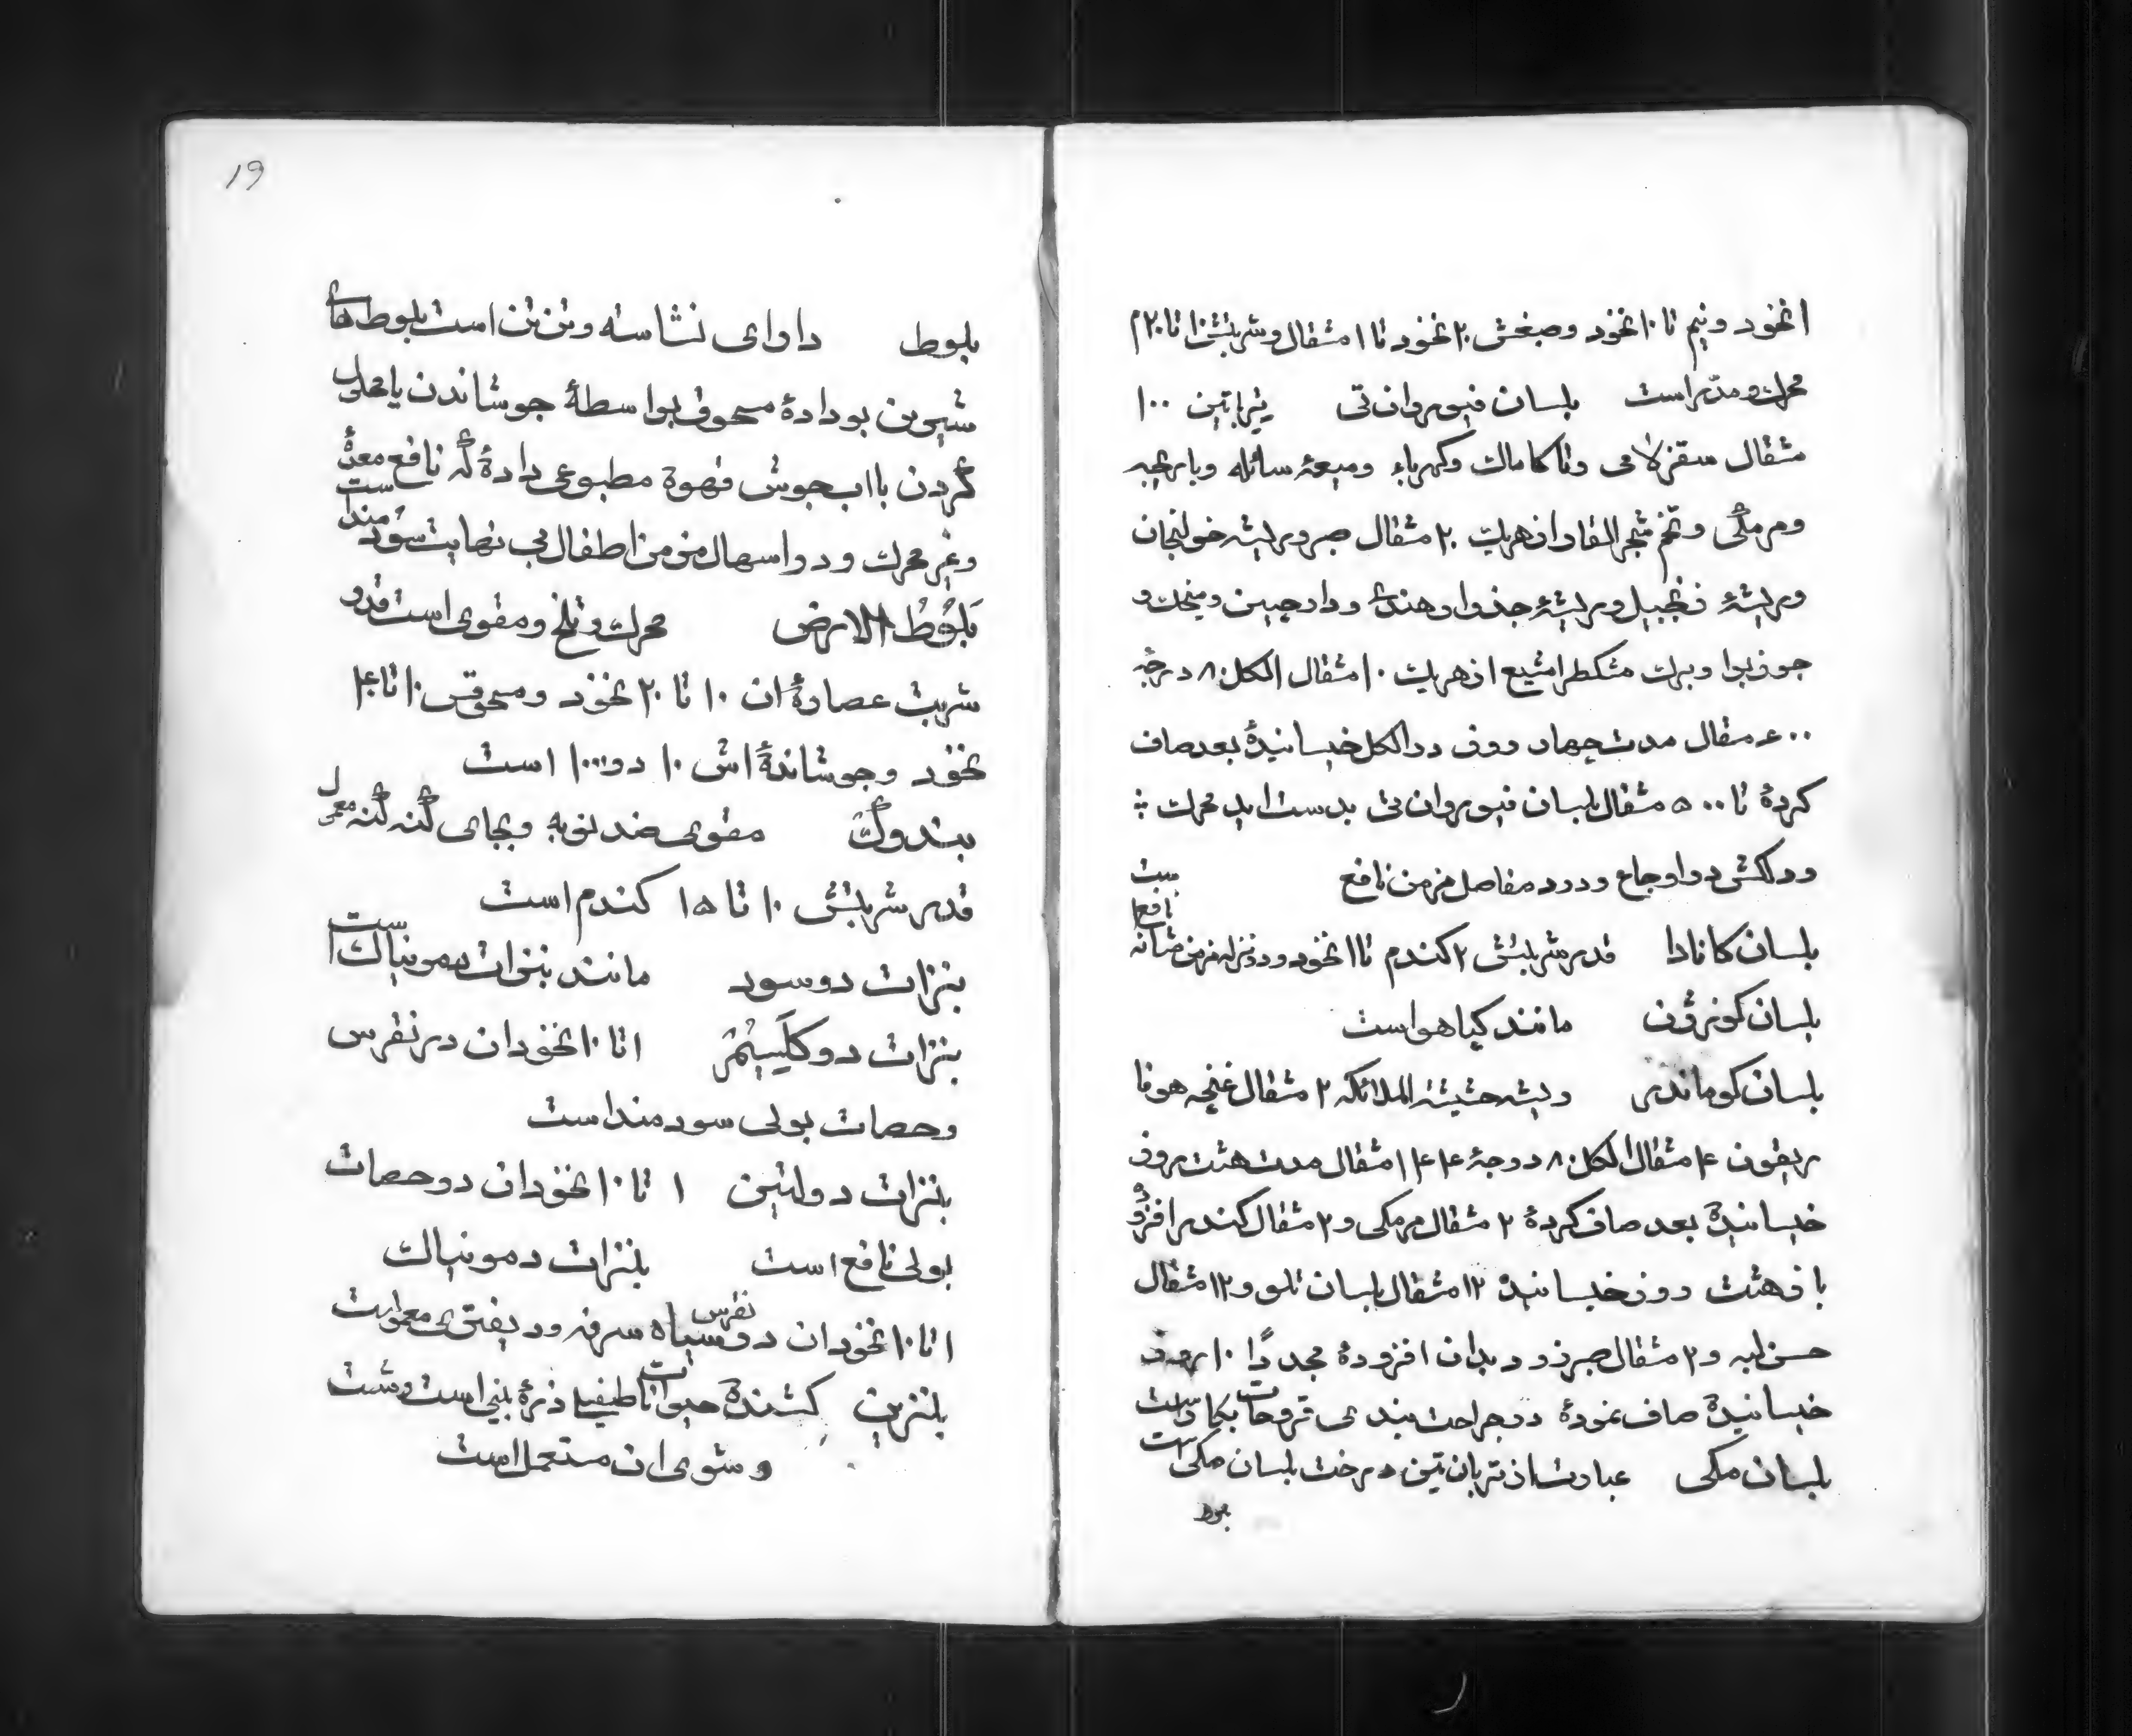 ۱ نخود و نیم تا ۱۰ نخود وصبغش ۲۰ نخود تا ۱ مثقال و شربتش ۱۰ تا ۲۰ م
محرک و مدر است بلسان فیوروان تی تربانتین ۱۰۰
مثقال سقز لامی وتاکاماک وکهرباء ومیعهٔ سائله وبارنجبه
ومرمکی وتخم شجر الغار از هریک ۲۰ مثقال صبر وریشه خولنجان
وریشهٔ زنجبیل وریشهٔ جذوار هندی ودارچین ومیخک و
جوزبوا وبرک مشکطرامشیع ازهریک ۱۰ مثقال الکل ۸۰ درجه
۶۰۰ مثقال مدت چهار روز در الکل خیسانیدهٔ بعد صاف
کردهٔ تا ۵۰۰ مثقال بلسان فیوروان تی بدست اید محرک :
ودلکش در اوجاع ودرد مفاصل مزمن نافع
بلسان کانادا قدر شربتش ۲ کندم تا ۱ نخود ودر نزله مزمن مثانه نافع است
بلسان کونرون مانند کیاهو است
بلسان کوماندر ریشه حشیشة الملائکه ۲ مثقال غنچه هوفا
ریقون ۴ مثقال الکل ۸۰ درجهٔ ۱۴۴ مثقال مدت هشت روز
خیسانیدة بعد صاف کردهٔ ۲ مثقال مرمکی و ۲ مثقال کندر افزوده
باز هشت روز خیسانیدة ۱۲ مثقال بلسان تلو و ۱۲ مثقال
حسن لبه و ۲ مثقال صبر زرد بدان افزودهٔ مجدداً ۱۰ روز
خیسانیدة صاف نمودهٔ درجراحت بندی قروحات بکار است
بلسان مکی عبارت از تربانتین درخت بلسان مکی است
بلوط
۱۹
بلوط داوای نشاسته وتن تن است بلوط های
شیرین بودادهٔ مسحوق بواسطهٔ جوشاندن یا محلول
کردن با اب جوش قهوة مطبوعی دادهٔ که نافع معدهٔ است
وغیر محرک ودر اسهال مزمن اطفال بی نهایت سودمند است
بَلُوطُ الارض محرک وتلخ ومقوی است قدر
شربت عصارهٔ ان ۱۰ تا ۲۰ نخود ومسحوقس ۱۰ تا ۴۰
نخود وجوشاندهٔ اش ۱۰ در ۱۰۰۰ است
بندوک مقوی ضد نوبه وبجای کنه کنه معمول
قدر شربتش ۱۰ تا ۱۵ کندم است
بنزات دوسود مانند بنزات دمونیاک است
بنزات دوکلسیم ۱ تا ۱۰ نخودان درنقرس
وحصات بولی سودمند است
بنزات دولیتین ۱ تا ۱۰ نخودان درحصات
بولی نافع است بنزات دمونیاک
۱ تا ۱۰ نخودان درنقرس سیاه سرفه ودیفتری معمولست
بنزین کشندهٔ حیوانات طفیلی ذرهٔ بینی است وشت
وشوی ان مستعمل است